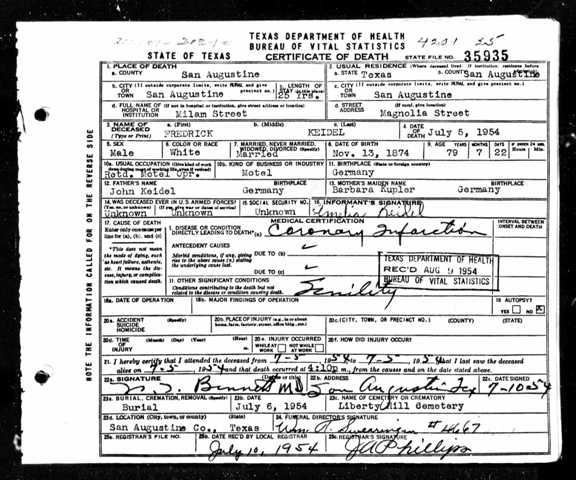 TEXAS DEPARTMENT OF HEALTH
BUREAU OF VITAL STATISTICS
STATE OF TEXAS CERTIFICATE OF DEATH STATE FILE NO. 35935
1. PLACE OF DEATH 2. USUAL RESIDENCE (Where deceased lived. If institution, residence before admission)
a. COUNTY San Augustine a. STATE Texas b. COUNTY San Augustine
b. CITY (If outside corporate limits, write RURAL and give precinct no.) c. LENGTH OF STAY c. CITY (If outside corporate limits, write RURAL and give precinct no.)
OR TOWN San Augustine 25 Yrs. OR TOWN San Augustine
d. FULL NAME OF (If not in hospital or institution, give street address or location) d. STREET (If rural, give location)
HOSPITAL OR INSTITUTION Milam Street ADDRESS Magnolia Street
3. NAME OF DECEASED (Type or Print) a. (First) b. (Middle) c. (Last) 4. DATE OF DEATH
FREDRICK KEIDEL July 5, 1954
5. SEX 6. COLOR OR RACE 7. MARRIED, NEVER MARRIED, WIDOWED, DIVORCED (Specify) 8. DATE OF BIRTH 9. AGE
Male White Married Nov. 13, 1874 79 7 22
10a. USUAL OCCUPATION 10b. KIND OF BUSINESS OR INDUSTRY 11. BIRTHPLACE (State or foreign country)
Retd. Motel Opr. Motel Germany
12. FATHER'S NAME BIRTHPLACE 13. MOTHER'S MAIDEN NAME BIRTHPLACE
John Keidel Germany Barbara Kupler Germany
14. WAS DECEASED EVER IN U.S. ARMED FORCES? 15. SOCIAL SECURITY NO. 16. INFORMANT'S SIGNATURE
Unknown Unknown Unknown Keidel
17. CAUSE OF DEATH MEDICAL CERTIFICATION INTERVAL BETWEEN ONSET AND DEATH
Enter only one cause per line for (a), (b), and (c)
I. DISEASE OR CONDITION DIRECTLY LEADING TO DEATH* (a) Coronary Infarction
*This does not mean the mode of dying, such as heart failure, asthenia, etc. It means the disease, injury, or complication which caused death.
ANTECEDENT CAUSES
Morbid conditions, if any, giving rise to the above cause (a) stating the underlying cause last.
DUE TO (b)
DUE TO (c)
TEXAS DEPARTMENT OF HEALTH
REC'D AUG 9 1954
BUREAU OF VITAL STATISTICS
II. OTHER SIGNIFICANT CONDITIONS
Conditions contributing to the death but not related to the disease or condition causing death.
Senility
18a. DATE OF OPERATION 18b. MAJOR FINDINGS OF OPERATION 19. AUTOPSY?
YES NO X
20a. ACCIDENT SUICIDE HOMICIDE (Specify) 20b. PLACE OF INJURY (e.g., in or about home, farm, factory, street, office bldg., etc.) 20c. (CITY, TOWN, OR PRECINCT NO.) (COUNTY) (STATE)
20d. TIME OF INJURY (Month) (Day) (Year) (Hour) 20e. INJURY OCCURRED WHILE AT WORK NOT WHILE AT WORK 20f. HOW DID INJURY OCCUR?
21. I hereby certify that I attended the deceased from 7-5 1954 to 7-5 1954 that I last saw the deceased
alive on 7-5 1954 and that death occurred at 4:10p m., from the causes and on the date stated above.
22a. SIGNATURE (Degree or title) 22b. ADDRESS 22c. DATE SIGNED
Bennett MD San Augustine Tex 7-10-54
23a. BURIAL, CREMATION, REMOVAL (Specify) 23b. DATE 23c. NAME OF CEMETERY OR CREMATORY
Burial July 6, 1954 Liberty Hill Cemetery
23d. LOCATION (City, town, or county) (State) 24. FUNERAL DIRECTOR'S SIGNATURE
San Augustine Co., Texas #4667
25a. REGISTRAR'S FILE NO. 25b. DATE REC'D BY LOCAL REGISTRAR 25c. REGISTRAR'S SIGNATURE
July 10, 1954 Phillips
NOTE THE INFORMATION CALLED FOR ON THE REVERSE SIDE